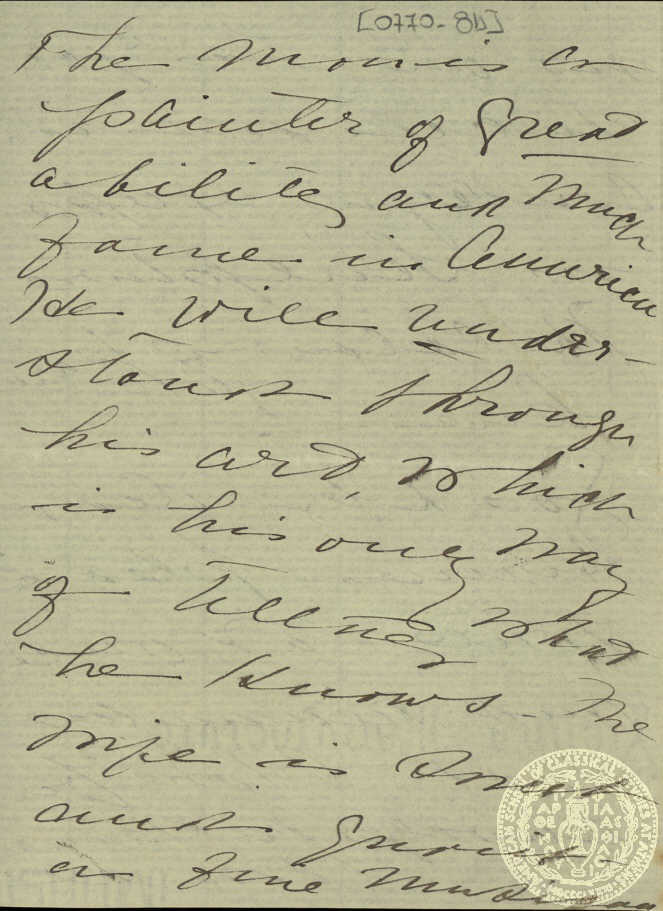 [0770-84]
The man is a
painter of Great
ability and much
fame in America
He will under-
stand through
his art, which
is his only way
of telling what
he knows - The
wife is Smart
and
a fine